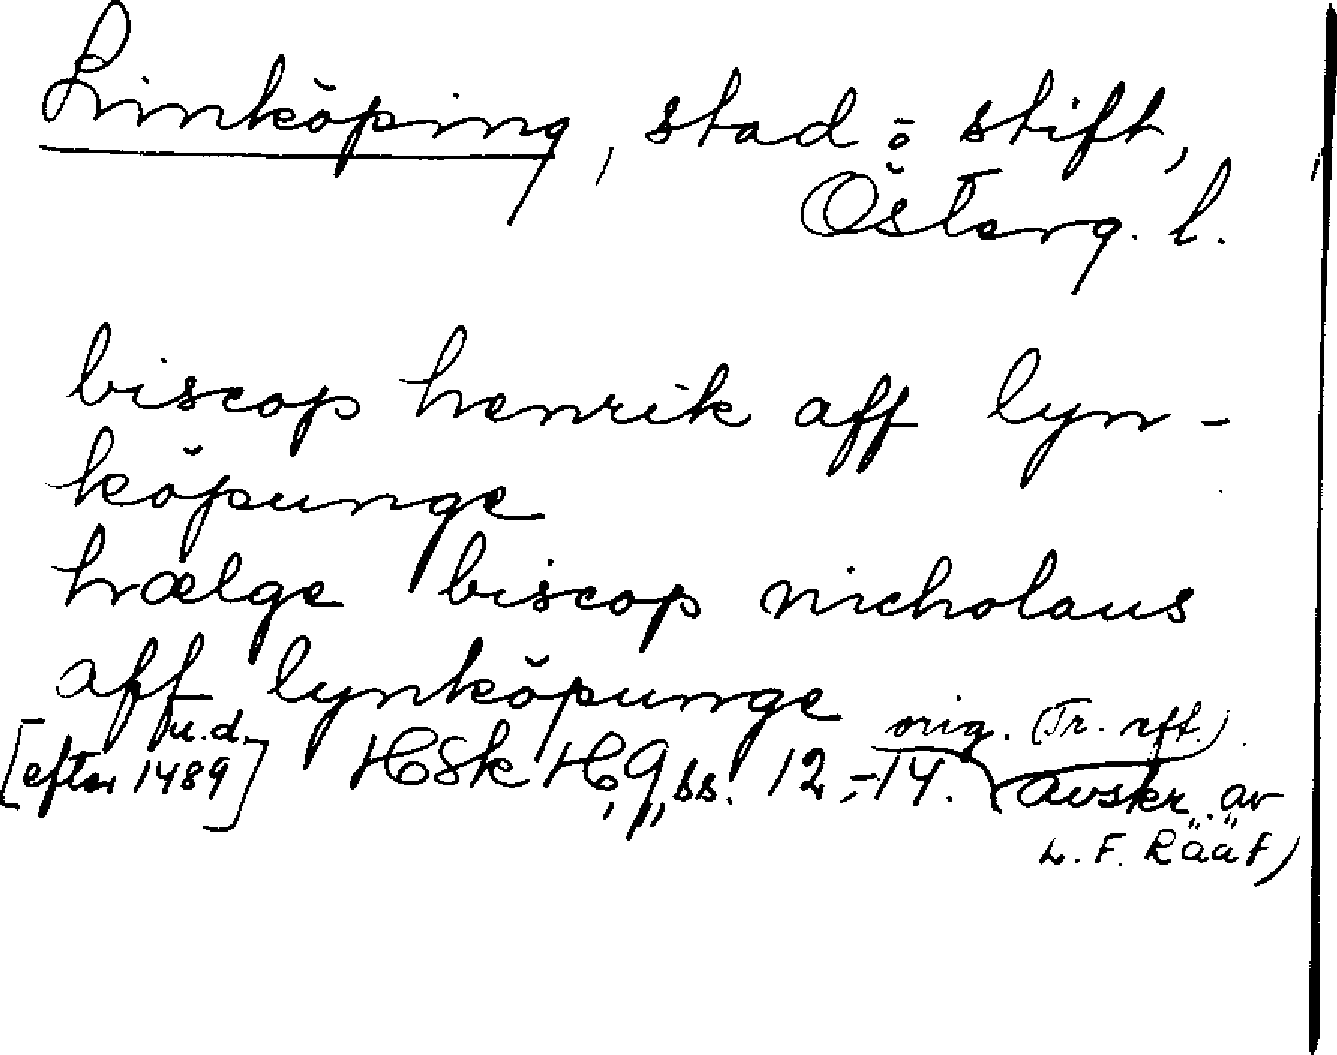 Linköping, stad o stift,
Österg. l.
biscop henrik aff lyn-
köpunge
hælge biscop nicholaus
aff lynköpunge
orig. (Tr. rft.)
u.d.
[efter 1489] HSk H, 9, ss. 12-14. (avskr. av
L. F. Rääf)